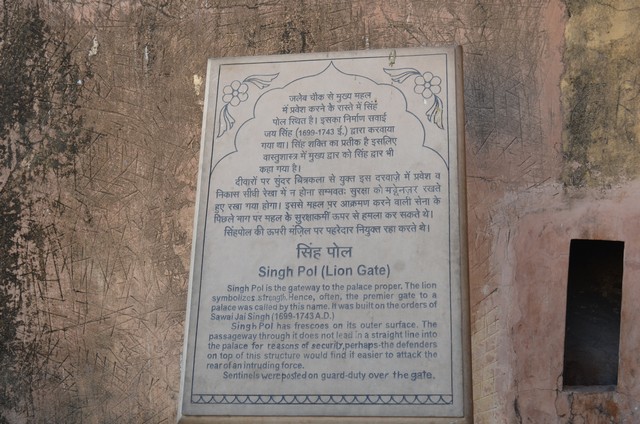 जलेब चौक से मुख्य महल
में प्रवेश करने के रास्ते में सिंह
पोल स्थित है। इसका निर्माण सवाई
जय सिंह (1699-1743 ई.) द्वारा करवाया
गया था। सिंह शक्ति का प्रतीक है इसलिए
वास्तुशास्त्र में मुख्य द्वार को सिंह द्वार भी
कहा गया है।
दीवारों पर सुंदर चित्रकला से युक्त इस दरवाज़े में प्रवेश व
निकास सीधी रेखा में न होना सम्भवतः सुरक्षा को मद्देनज़र रखते
हुए रखा गया होगा। इससे महल पर आक्रमण करने वाली सेना के
पिछले भाग पर महल के सुरक्षाकर्मी ऊपर से हमला कर सकते थे।
सिंहपोल की ऊपरी मंज़िल पर पहरेदार नियुक्त रहा करते थे।
सिंह पोल
Singh Pol (Lion Gate)
Singh Pol is the gateway to the palace proper. The lion
symbolizes strength. Hence, often, the premier gate to a
palace was called by this name. It was built on the orders of
Sawai Jai Singh (1699-1743 A.D.)
Singh Pol has frescoes on its outer surface. The
passageway through it does not lead in a straight line into
the palace for reasons of security, perhaps-the defenders
on top of this structure would find it easier to attack the
rear of an intruding force.
Sentinels were posted on guard-duty over the gate.